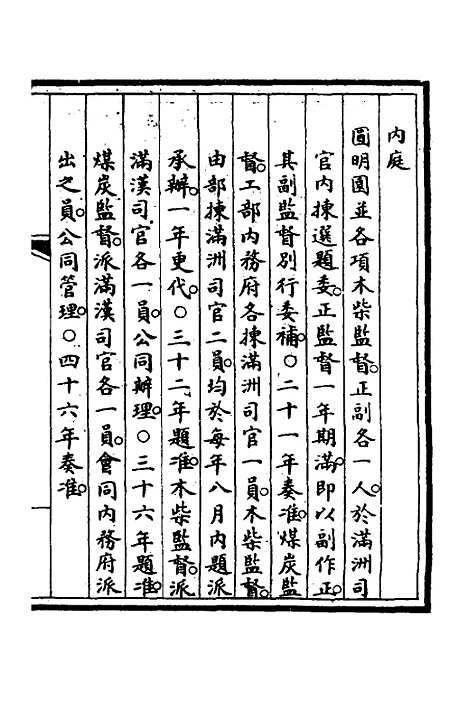 內庭
圓明園並各項木柴監督。正副各一人。於滿洲司
官內揀選題委。正監督一年期滿。即以副作正。
其副監督別行委補。○二十一年奏准。煤炭監
督。工部內務府各揀滿洲司官一員。木柴監督。
由部揀滿洲司官二員。均於每年八月內題派
承辦。一年更代。○三十二年題准。木柴監督。派
滿漢司官各一員。公同辦理。○三十六年題准。
煤炭監督。派滿漢司官各一員。會同內務府派
出之員。公同管理。○四十六年奏准。